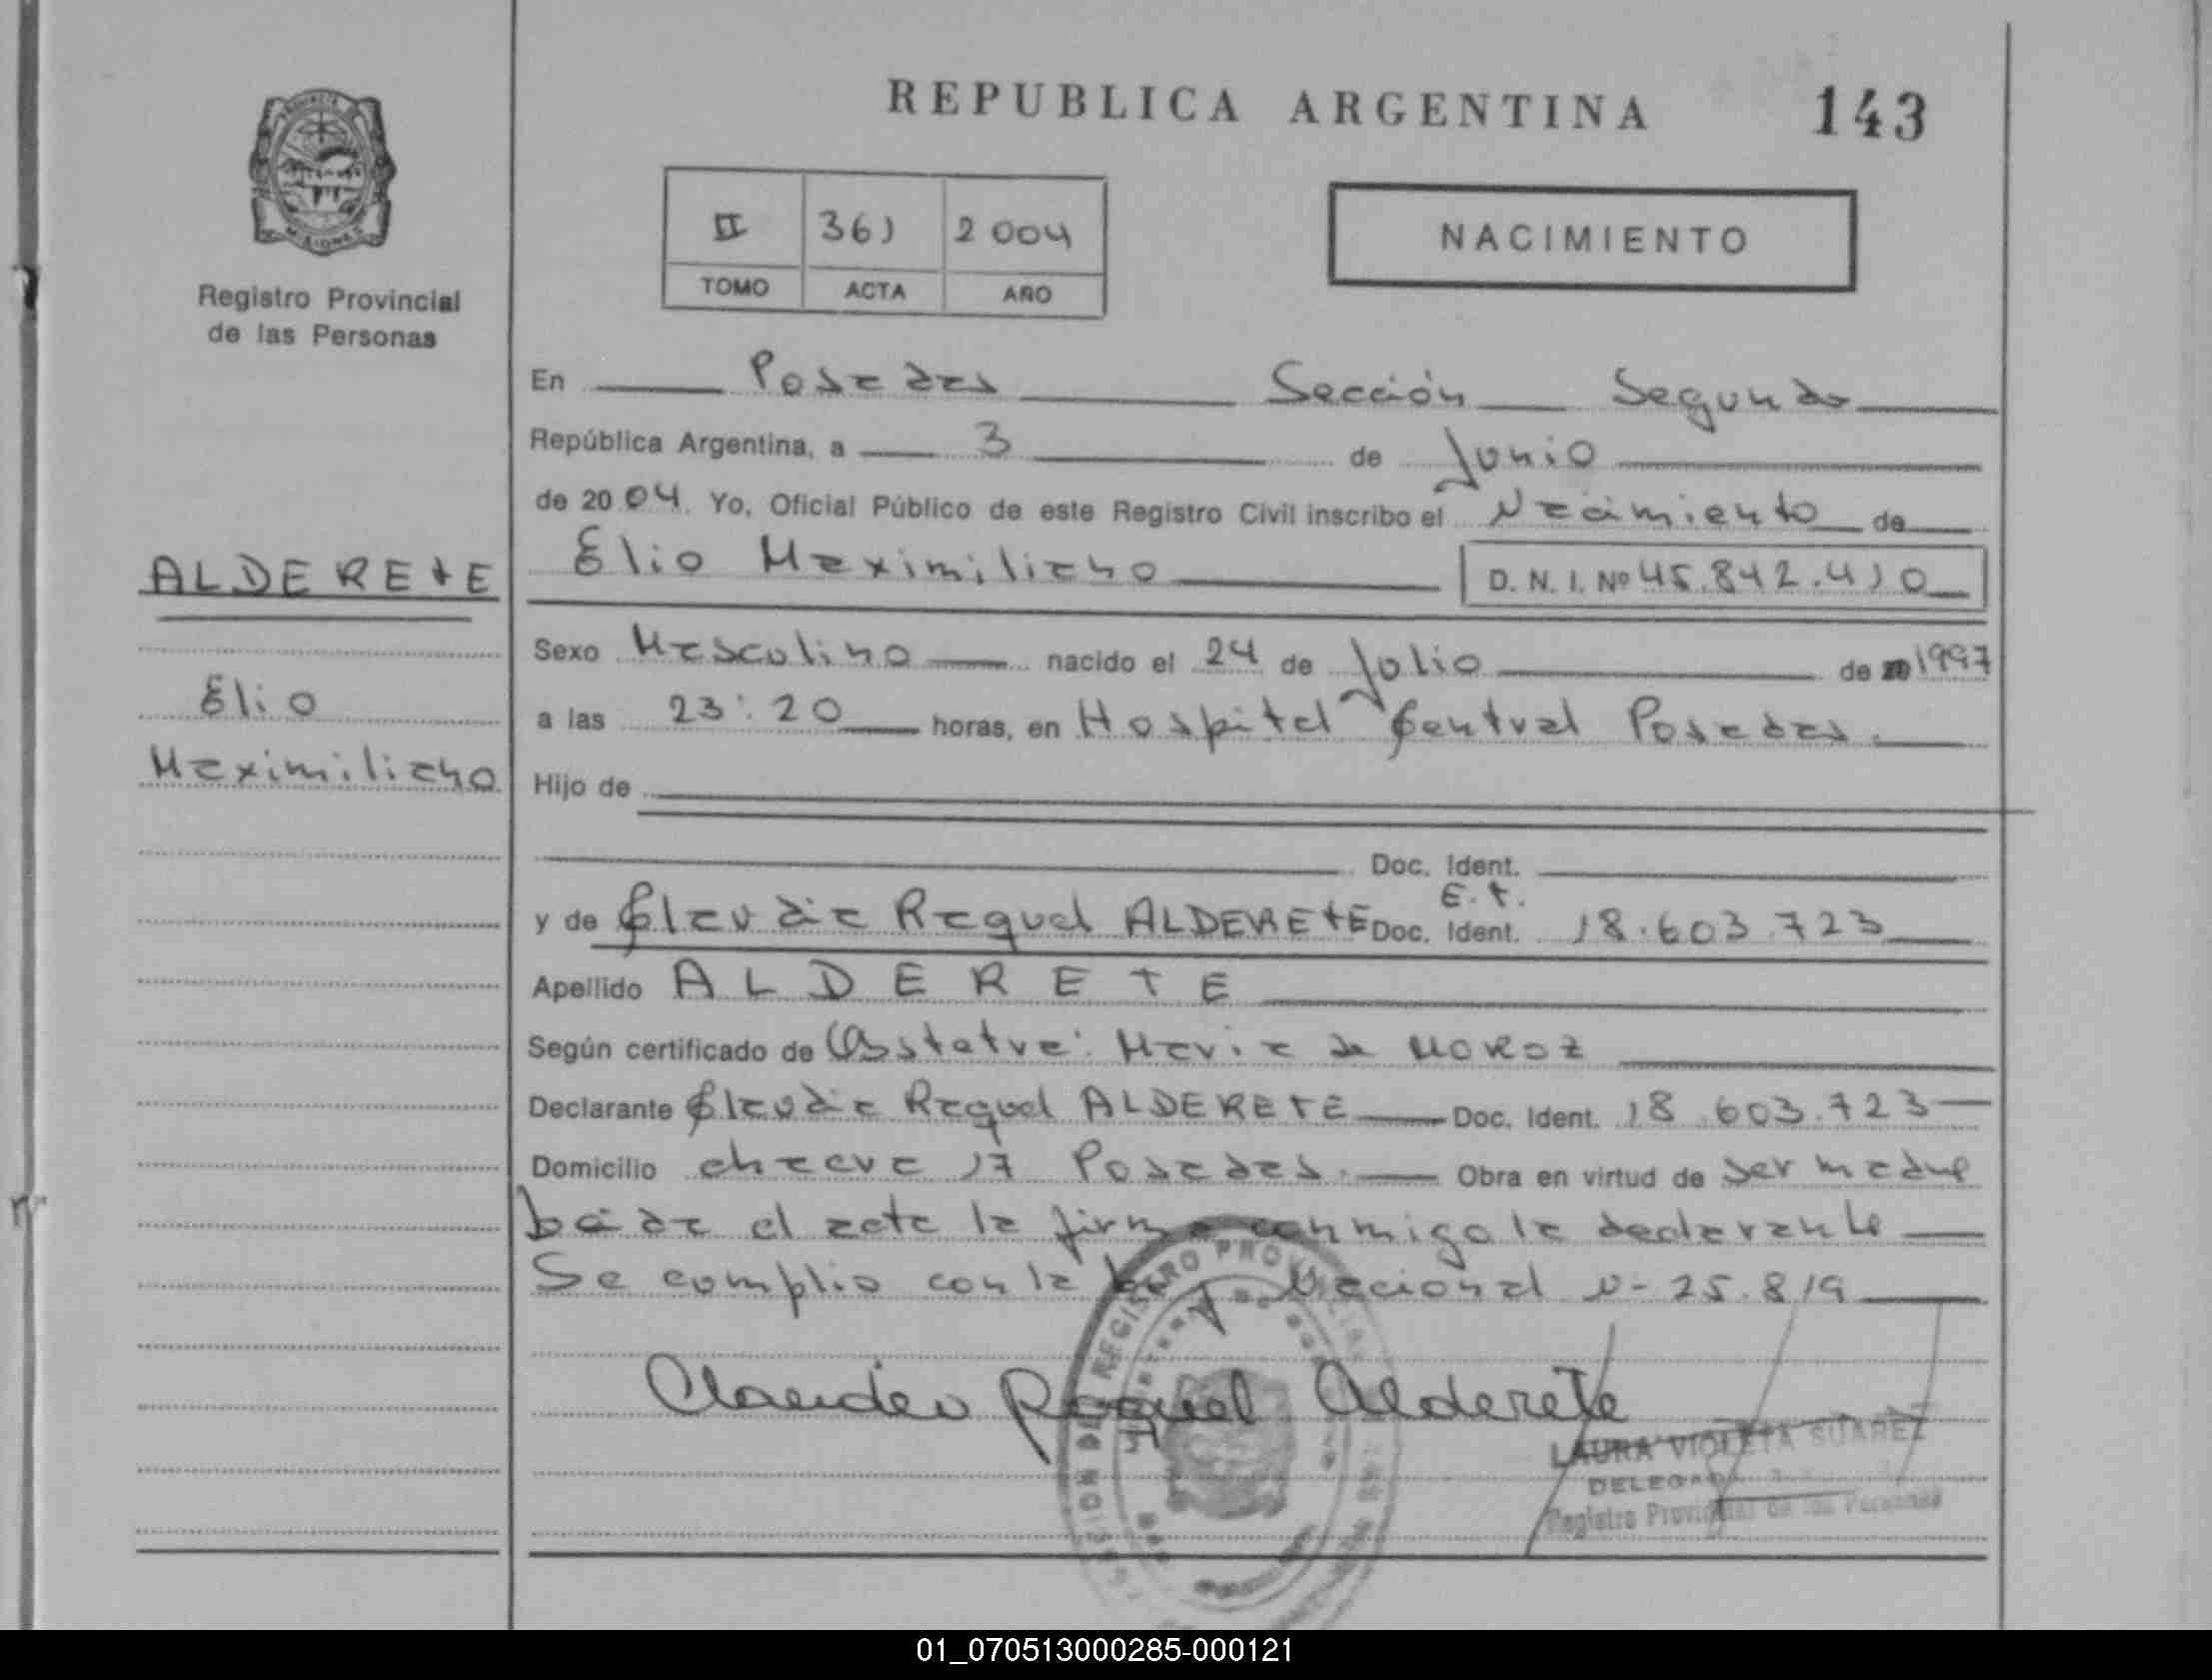 REPUBLICA ARGENTINA
143
MISIONES
Registro Provincial
de las Personas
II 361 2004
TOMO ACTA AÑO
NACIMIENTO
En Posadas Sección Segunda
República Argentina, a 3 de Junio
de 2004. Yo, Oficial Público de este Registro Civil inscribo el Nacimiento de
Elio Maximiliano D. N. I. Nº 45.842.410
ALDERETE
Elio
Maximiliano
Sexo Masculino nacido el 24 de Julio de 1997
a las 23:20 horas, en Hospital Central Posadas.
Hijo de
Doc. Ident.
E.T.
y de Claudia Raquel ALDERETE Doc. Ident. 18.603.723
Apellido ALDERETE
Según certificado de Obstetra: Maria de MOROZ
Declarante Claudia Raquel ALDERETE Doc. Ident. 18.603.723
Domicilio chacra 17 Posadas. Obra en virtud de ser madre
el acta la firma conmigo la declarante
Se cumplio con la ley Nacional N- 25.819
Claudia Raquel Alderete
LAURA VIOLETA SUAREZ
DELEGADA
Registro Provincial de las Personas
01_070513000285-000121